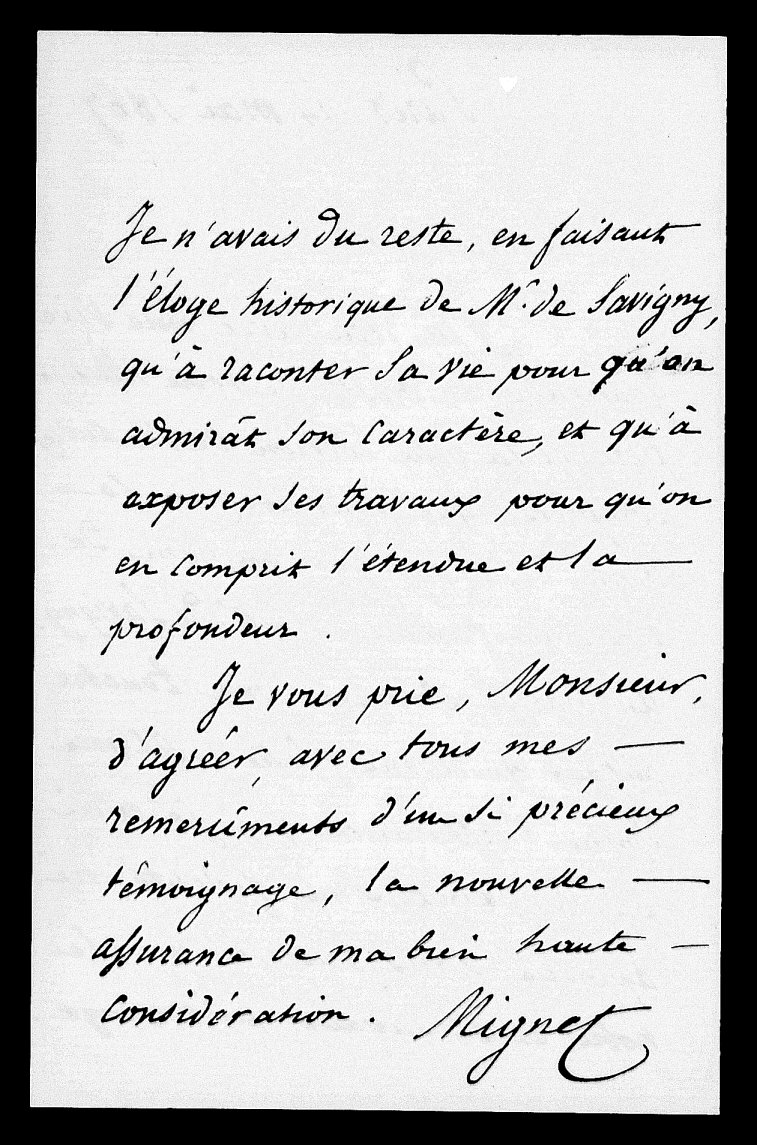 Je n'avais du reste, en faisant
l'éloge historique de Mr. de Savigny,
qu'à raconter sa vie pour qu'on
admirât son caractère, et qu'à
exposer ses travaux pour qu'on
en comprit l'étendue et la —
profondeur.
Je vous prie, Monsieur,
d'agréer, avec tous mes —
remercîments d'un si précieux
témoignage, la nouvelle —
assurance de ma bien haute —
considération. Mignet